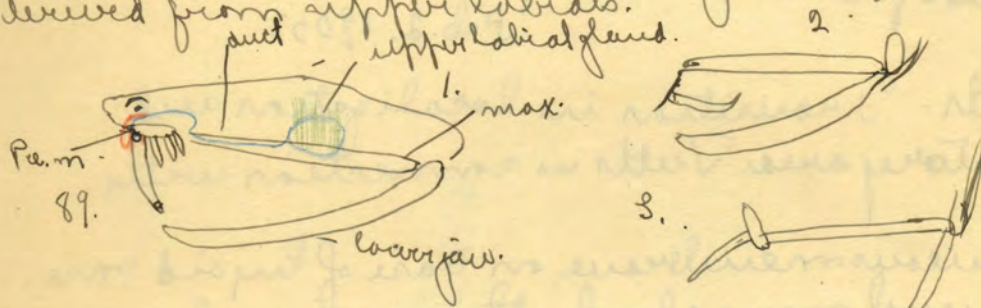 derived from upper labials.
duct
upper labial gland.
2
1.
max.
Pre.m.
89.
3.
lower jaw.